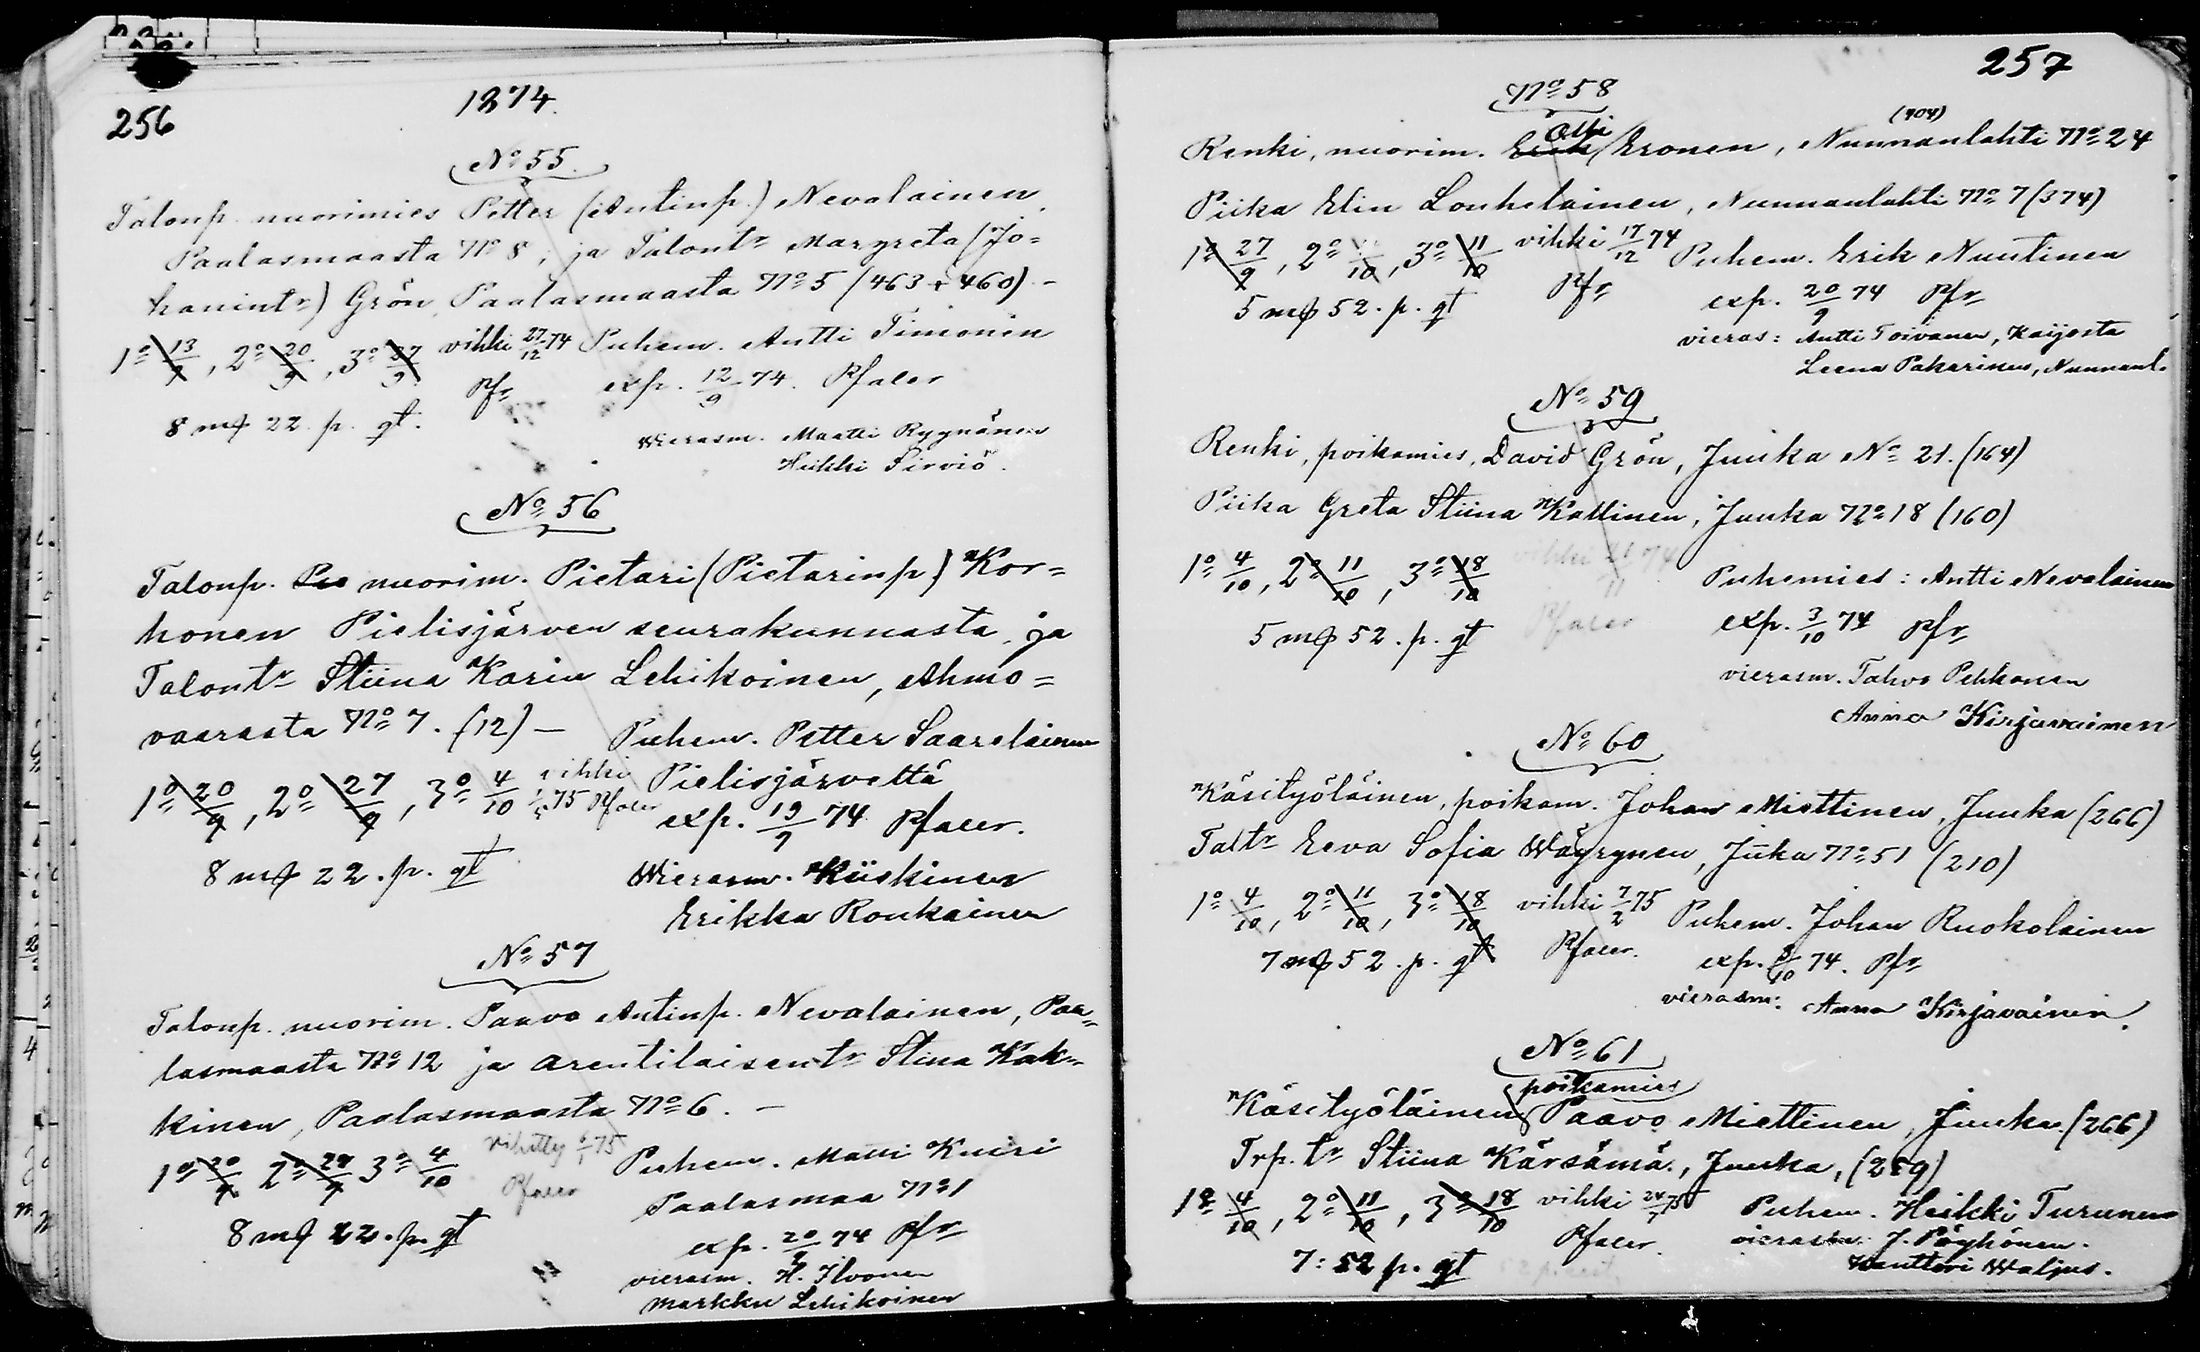 256
1874.
No 55.
Talonp. nuorimies Petter (Antinp.) Nevalainen,
Paalasmaasta No 8; ja Talontr Margreta (Jo=
hanintr) Grön, Paalasmaasta No 5 (463 + 460). -
1o 13/9, 2o 20/9, 3o 27/9 vihki 27/12 74 Puhem. Antti Timonen
Pfr exp. 12/9 74. Pfaler
8 mk 22. p. gt.
Wierasm. Maatti Ryynänen
Heikki Sirviö.
No 56
Talonp. nuorim. Pietari (Pietarinp.) Kor=
honen Pielisjärven seurakunnasta, ja
Talontr Stiina Karin Lehikoinen, Ahmo=
vaarasta No 7. (12) - Puhem. Petter Saarelainen
1o 20/9, 2o 27/9, 3o 4/10 vihki 75 Pfaler Pielisjärveltä
exp. 19/9 74 Pfaler.
8 mk 22. p. gt
Wierasm. Kiiskinen
Erikka Ronkainen
No 57
Talonp. nuorim. Paavo Antinp. Nevalainen, Paa=
lasmaasta No 12 ja arentilaisentr Stina Kak=
kinen, Paalasmaasta No 6. -
1o 20/9 2o 27/9 3o 4/10 vihitty 6/1 75 Puhem. Matti Kneri
Pfaler Paalasmaa No 1
8 mk 22. p. gt exp. 20/9 74 Pfr
vierasm. H. Ilvonen
Markku Lehikoinen
257
No 58
Olli (404)
Renki, nuorim. Erik Eronen, Nunnanlahti No 24
Piika Elin Louhelainen, Nunnanlahti No 7 (374)
1o 27/9, 2o /10, 3o 11/10 vihki 17/12 74 Puhem. Erik Nuutinen
5 mk 52. p. gt Pfr exp. 20/9 74 Pfr
vieras: Antti Toivanen, Kaijosta
Leena Pakarinen, Nunnanl.
No 59
Renki, poikamies, David Grön, Juuka No 21. (164)
Piika Greta Stiina Kallinen, Juuka No 18 (160)
1o 4/10, 2o 11/10, 3o 18/10 vihki 21/11 74 Puhemies: Antti Nevalainen
5 mk 52. p. gt Pfaler exp. 3/10 74 Pfr
vierasm. Tahvo Pehkonen
Anna Kirjavainen
No 60
Käsityöläinen, poikam. Johan Miettinen, Juuka (266)
Taltr Eeva Sofia Wäyrynen, Juka No 51 (210)
1o 4/10, 2o 11/10, 3o 18/10 vihki 7/2 75 Puhem. Johan Ruokolainen
7 mk 52. p. gt Pfaler. exp. 3/10 74. Pfr
vierasm: Anna Kirjavainen.
No 61
poikamies
Käsityöläinen Paavo Miettinen, Juuka (266)
Trp. tr Stiina Kärsämä, Juuka, (259)
1o 4/10, 2o 11/10, 3o 18/10 vihki 24/1 75 Puhem. Heikki Turunen
Pfaler. vierasm. J. Pöyhönen.
7: 52 p. gt Wanttori Waljus.